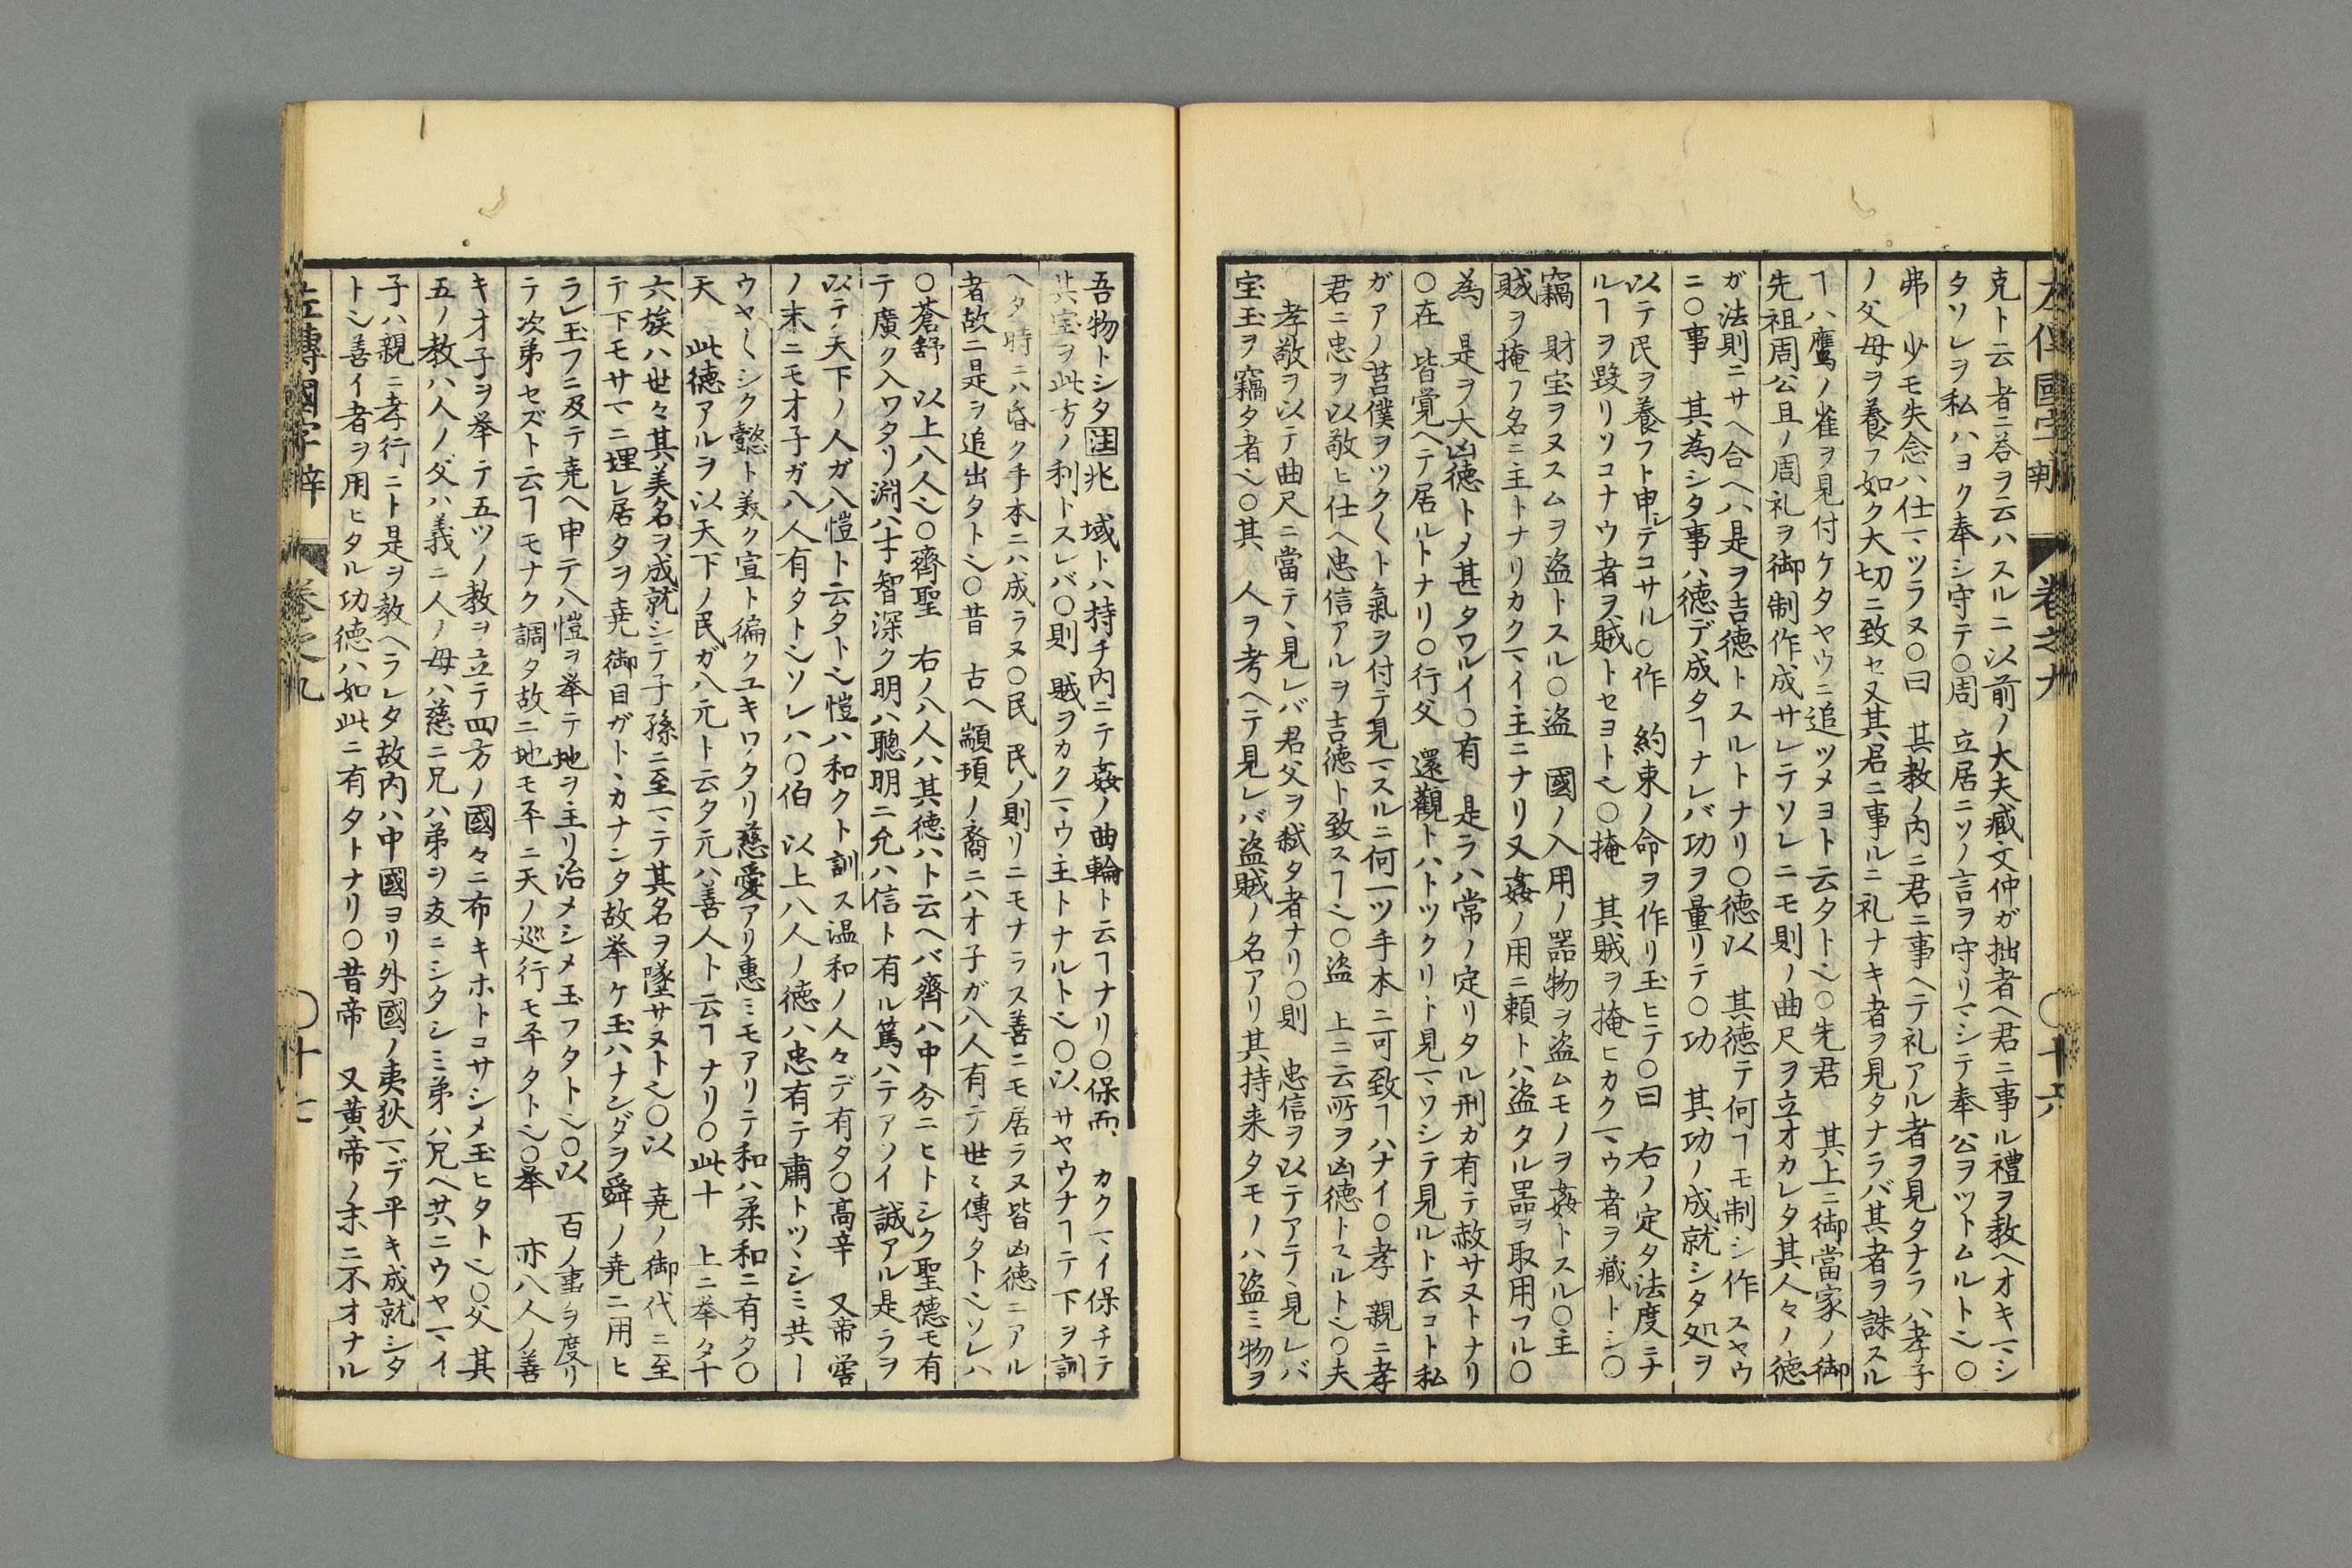 左傳國字辨 卷之九 〇十六
克ト云者ニ答ヲ云ハスルニ以前ノ大夫臧文仲ガ拙者ヘ君ニ事ル禮ヲ教ヘオキマシ
タソレヲ私ハヨク奉シ守テ〇周 立居ニソノ言ヲ守リマシテ奉公ヲツトムルト也〇
弗 少モ失念ハ仕マツラヌ〇曰 其教ノ内ニ君ニ事ヘテ礼アル者ヲ見タナラハ孝子
ノ父母ヲ養フ如ク大切ニ致セ又其君ニ事ルニ礼ナキ者ヲ見タナラバ其者ヲ誅スル
ヿハ鷹ノ雀ヲ見付ケタヤウニ追ツメヨト云タト也〇先君 其上ニ御當家ノ御
先祖周公旦ノ周礼ヲ御制作成サレテソレニモ則ノ曲尺ヲ立オカレタ其人々ノ德
ガ法則ニサヘ合ヘハ是ヲ吉德トスルトナリ〇德以 其德テ何ヿモ制シ作スヤウ
ニ〇事 其為シタ事ハ德デ成タヿナレバ功ヲ量リテ〇功 其功ノ成就シタ処ヲ
以テ民ヲ養フト申テコサル〇作 約束ノ命ヲ作リ玉ヒテ〇曰 右ノ定タ法度ニナ
ルヿヲ毀リソコナウ者ヲ賊トセヨト也〇掩 其賊ヲ掩ヒカクマウ者ヲ藏トシ〇
竊 財宝ヲヌスムヲ盗トスル〇盗 國ノ入用ノ噐物ヲ盗ムモノヲ姦トスル〇主
賊ヲ掩フ名ニ主トナリカクマイ主ニナリ又姦ノ用ニ頼トハ盗タル噐ヲ取用フル〇
為 是ヲ大凶德トノ甚タワルイ〇有 是ラハ常ノ定リタル刑カ有テ赦サヌトナリ
〇在 皆覚ヘテ居ルトナリ〇行父 還觀トハトツクリト見マワシテ見ルト云コト私
ガアノ莒僕ヲツク〱ト氣ヲ付テ見マスルニ何一ツ手本ニ可致ヿハナイ〇孝 親ニ孝
君ニ忠ヲ以敬ヒ仕ヘ忠信アルヲ吉德ト致スヿ也〇盗 上ニ云所ヲ凶德トスルト也〇夫
孝敬ヲ以テ曲尺ニ當テヽ見レバ君父ヲ弑タ者ナリ〇則 忠信ヲ以テアテヽ見レバ
宝玉ヲ竊タ者也〇其 人ヲ考ヘテ見レバ盗賊ノ名アリ其持来タモノハ盗ミ物ヲ
吾物トシタ注兆 域トハ持チ内ニテ姦ノ曲輪ト云ヿナリ〇保而 カクマイ保チテ
其宝ヲ此方ノ利トスレバ〇則 賊ヲカクマウ主トナルト也〇以 サヤウナヿニテ下ヲ訓
ヘタ時ニハ昏ク手本ニハ成ラヌ〇民 民ノ則リニモナラス善ニモ居ラヌ皆凶德ニアル
者故ニ是ヲ追出タト也〇昔 古ヘ顓頊ノ裔ニハオ子ガ八人有テ世〻傳タト也ソレハ
〇蒼舒 以上八人也〇齊聖 右ノ八人ハ其德ハト云ヘバ齊ハ中分ニヒトシク聖德モ有
テ廣ク入ワタリ淵ハ才智深ク明ハ聰明ニ允ハ信ト有ル篤ハテアツイ誠アル是ラヲ
以テノ天下ノ人ガ八愷ト云タト也愷ハ和クト訓ス温和ノ人々デ有タ〇高辛 又帝嚳
ノ末ニモ才子ガ八人有タト也ソレハ〇伯 以上八人ノ德ハ忠有テ肅トツヽシミ共ー
ウヤ〱シク懿ト美ク宣ト徧クユキワタリ慈愛アリ惠ミモアリテ和ハ柔和ニ有タ〇
天 此德アルヲ以天下ノ民ガ八元ト云タ元ハ善人ト云ヿナリ〇此十 上ニ挙タ十
六族ハ世々其美名ヲ成就シテ子孫ニ至マテ其名ヲ墜サヌト也〇以 堯ノ御代ニ至
テ下モサマニ埋レ居タヲ堯御目ガトヽカナンタ故挙ケ玉ハナンダヲ舜ノ堯ニ用ヒ
ラレ玉フニ及テ堯ヘ申テ八愷ヲ挙テ地ヲ主リ治メシメ玉フタト也〇以 百ノ事ヲ度リ
テ次弟セズト云ヿモナク調タ故ニ地モ平ニ天ノ巡行モ平タト也〇挙 亦八人ノ善
キオ子ヲ挙テ五ツノ教ヲ立テ四方ノ國々ニ布キホトコサシメ玉ヒタト也〇父 其
五ノ教ハ人ノ父ハ義ニ人ノ母ハ慈ニ兄ハ弟ヲ友ニシタシミ弟ハ兄ヘ共ニウヤマイ
子ハ親ニ孝行ニト是ヲ教ヘラレタ故内ハ中國ヨリ外國ノ夷狄マデ平キ成就シタ
ト也善イ者ヲ用ヒタル功德ハ如此ニ有タトナリ〇昔帝 又黄帝ノ末ニ不オナル
左傳國字辨 卷之九 〇十七